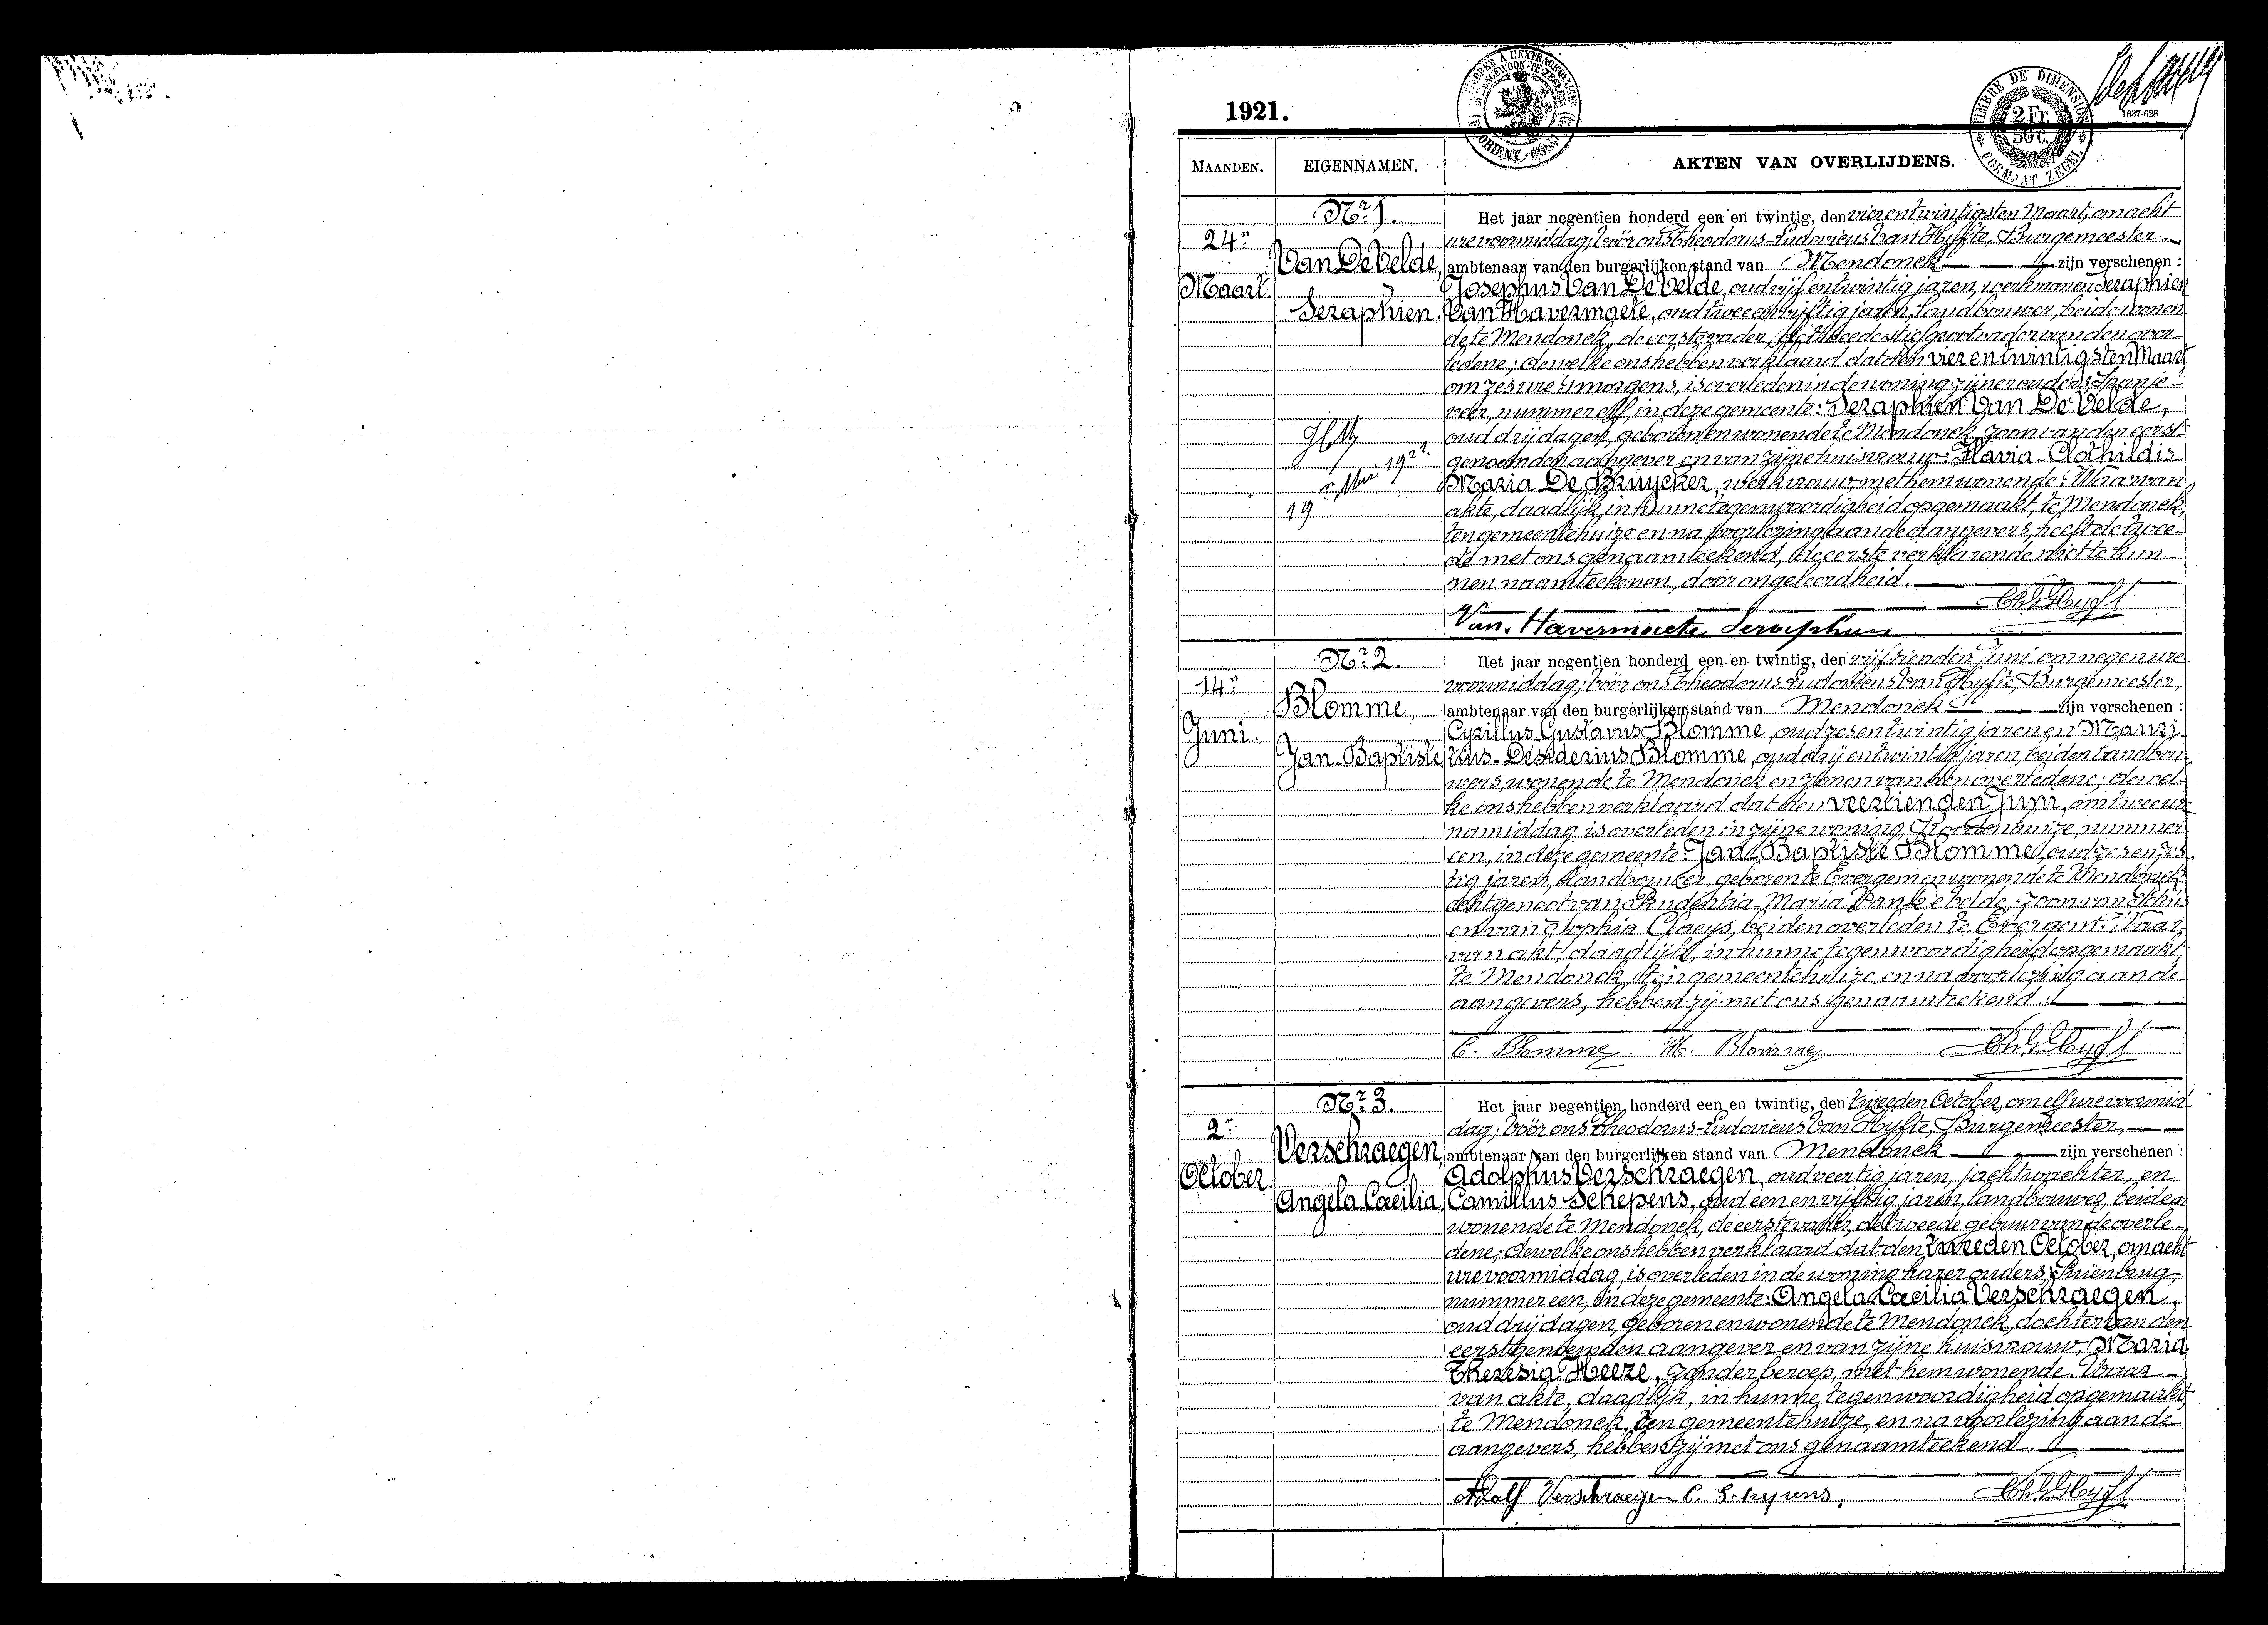 1921.
TIMBRE DE DIMENSION
2 Fr.
50 C.
FORMAAT ZEGEL
1637-628
MAANDEN.
EIGENNAMEN.
AKTEN VAN OVERLIJDENS.
Nr 1.
24n
Maart.
Van De Velde,
Seraphien.
19
1922.
Het jaar negentien honderd een en twintig, den vierentwintigsten Maart, om acht
ure voormiddag; vóór ons Theodorus-Ludovicus Van Hyfte, Burgemeester,
ambtenaar van den burgerlijken stand van Mendonck zijn verschenen :
Josephus Van De Velde, oud vijf en twintig jaren, werkman en Seraphien
Van Havermaete, oud twee en vijftig jaren, landbouwer, beide wonen
de te Mendonck, de eerste vader, de tweede stiefgrootvader van den over-
ledene; dewelke ons hebben verklaard dat den vier en twintigsten Maart,
om zes ure 's morgens, is overleden in de woning zijner ouders, Spanje-
veer, nummer elf, in deze gemeente: Seraphien Van De Velde,
oud drij dagen, geboren en wonende te Mendonck, zoon van den eerst-
genoemden aangever en van zijne huisvrouw: Flavia-Clothildis
Maria De Bruycker, werkvrouw, met hem wonende. Waarvan
akte, daadlijk, in hunne tegenwoordigheid opgemaakt, te Mendonck,
ten gemeentehuize en na voorlezing aan de aangevers, heeft de twee-
de met ons genaamteekend, de eerste verklarende niet te kun
nen naamteekenen, door ongeleerdheid.
Van Havermaete Seraphien
Nr 2.
14n
Juni.
Blomme,
Jan-Baptiste
Het jaar negentien honderd een en twintig, den vijftienden Juni, om negen ure
voormiddag; vóór ons Theodorus Ludovicus Van Hyfte, Burgemeester,
ambtenaar van den burgerlijken stand van Mendonck zijn verschenen :
Cyrillus Gustavus Blomme, oud zes en twintig jaren en Mauri-
tius-Desiderius Blomme, oud drij en twintig jaren, beiden landbou-
wers, wonende te Mendonck en zonen van den overledene; dewel-
ke ons hebben verklaard dat den veertienden Juni, om twee ur
namiddag is overleden in zijne woning, nummer
een, in deze gemeente: Jan-Baptiste Blomme, oud zes en zes-
tig jaren, landbouwer, geboren te Evergem en wonende te Mendonck
echtgenoot van Prudentia-Maria Van De Velde, zoon van
en van Sophia Claeys, beiden overleden te Evergem. Waar-
van akte, daadlijk, in hunne tegenwoordigheid opgemaakt,
te Mendonck, ten gemeentehuize, en na voorlezing aan de
aangevers, hebben zij met ons genaamteekend.
C. Blomme. M. Blomme
Nr 3.
2n
October.
Verschraegen,
Angela Cæcilia
Het jaar negentien honderd een en twintig, den tweeden October, om elf ure voormid
dag; vóór ons Theodorus-Ludovicus Van Hyfte, Burgemeester,
ambtenaar van den burgerlijken stand van Mendonck zijn verschenen :
Adolphus Verschraegen, oud veertig jaren, jachtwachter, en
Camillus Schepens, oud een en vijftig jaren, landbouwer, beiden
wonende te Mendonck, de eerste vader, de tweede gebuur van de overle-
dene; dewelke ons hebben verklaard dat den tweeden October, om acht
ure voormiddag, is overleden in de woning harer ouders,
nummer een, in deze gemeente: Angela Cæcilia Verschraegen,
oud drij dagen, geboren en wonende te Mendonck, dochter van den
eerstgenoemden aangever en van zijne huisvrouw, Maria
Theresia Heere, zonder beroep, met hem wonende. Waar-
van akte, daadlijk, in hunne tegenwoordigheid opgemaakt,
te Mendonck, ten gemeentehuize, en na voorlezing aan de
aangevers, hebben zij met ons genaamteekend.
Adolf Verschraegen C. Schepens.